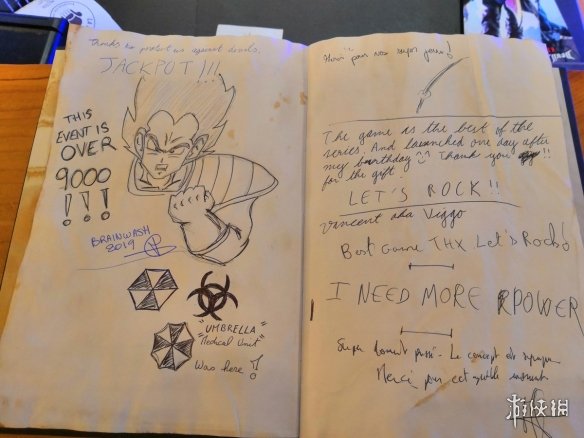 Thanks to protect us against devils.
JACKPOT!!!
THIS
EVENT IS
OVER
9000
!!!
BRAINWASH
2019
"UMBRELLA"
"Medical Unit"
Was here !
Merci pour ces super jeux !
The game is the best of the
series. And launched one day after
my birthday ^^ Thank you !!
for the gift.
LET'S ROCK !!
Vincent aka Viggo
Best Game THX Let's Rock!
I NEED MORE POWER
Super moment passé. Le concept est
Merci pour cet agréable moment
游侠网